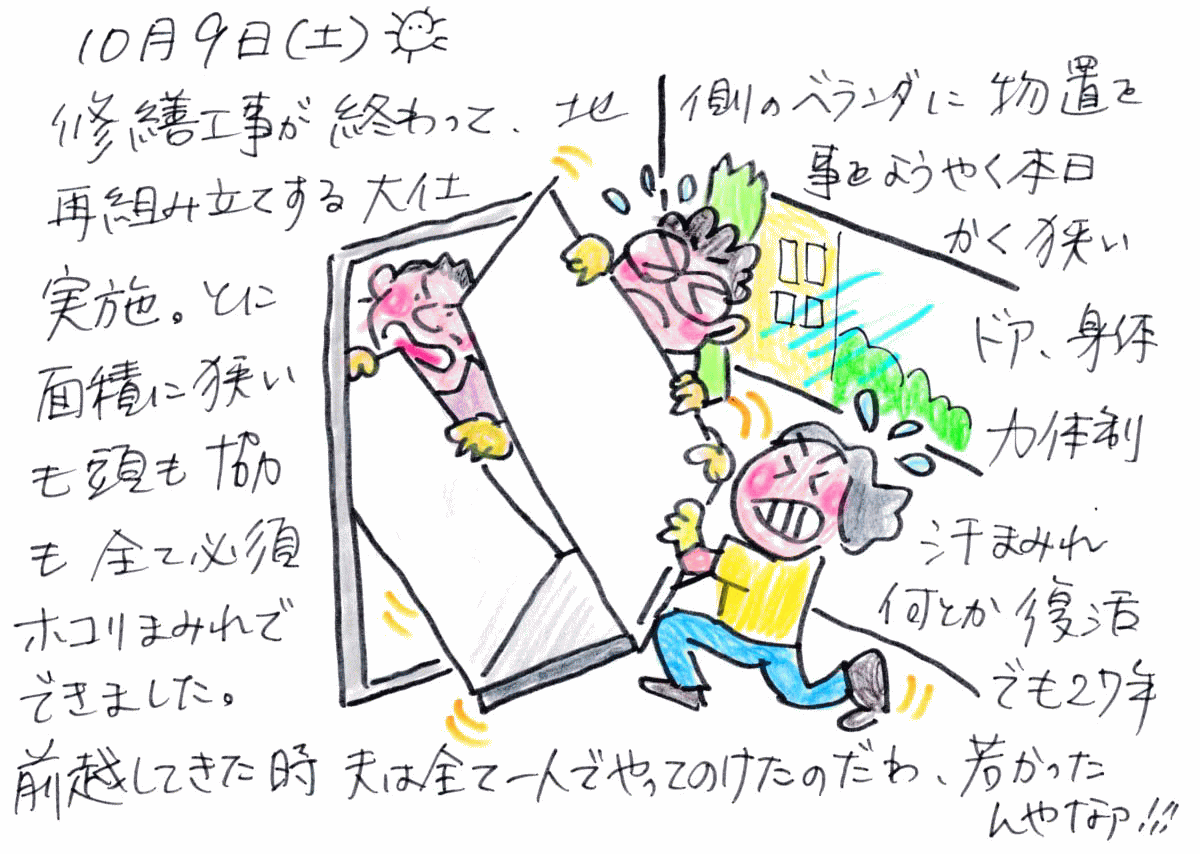 10月9日(土)
修繕工事が終わって、北側のベランダに物置を
再組み立てする大仕事をようやく本日
実施。とにかく狭い
面積に狭いドア、身体
も頭も協力体制
も全て必須汗まみれ
ホコリまみれで何とか復活
できました。でも27年
前越してきた時夫は全て一人でやってのけたのだわ、若かった
んやなァ!!!